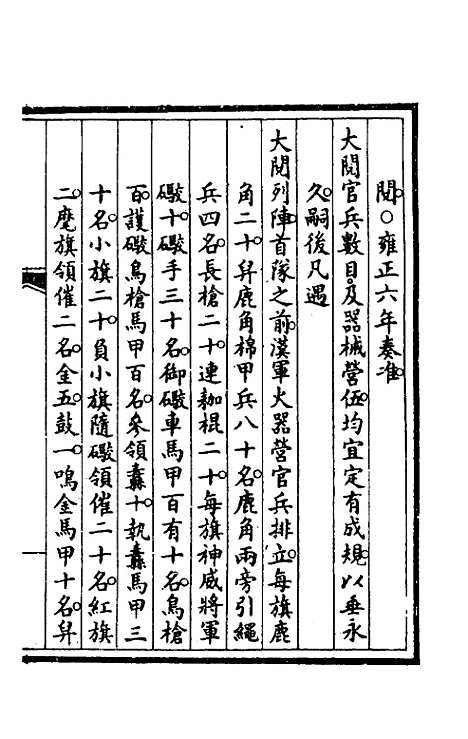 閱○雍正六年奏准
大閱官兵數目及器械營伍均宜定有成規以垂永
久嗣後凡遇
大閱列陣首隊之前漢軍火器營官兵排立每旗鹿
角二十舁鹿角棉甲兵八十名鹿角兩旁引繩
兵四名長槍二十連耞棍二十每旗神威將軍
礮十礮手三十名御礮車馬甲百有十名鳥槍
百護礮鳥槍馬甲百名參領纛十執纛馬甲三
十名小旗二十負小旗隨礮領催二十名紅旗
二麾旗領催二名金五鼓一鳴金馬甲十名舁